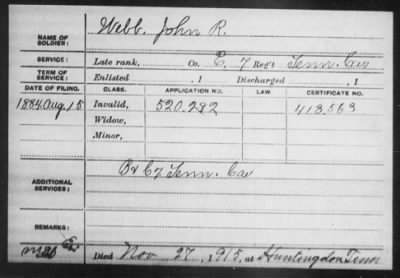 NAME OF SOLDIER: Webb, John R.
SERVICE: Late rank, Co. E, 7 Reg't Tenn. Cav
TERM OF SERVICE: Enlisted , 1 Discharged , 1
DATE OF FILING. CLASS. APPLICATION NO. LAW. CERTIFICATE NO.
1884 Aug. 15 Invalid, 520.282 413.563
Widow,
Minor,
ADDITIONAL SERVICES: Cy Tenn. Cav
REMARKS:
Died Nov. 27, 1915, at Huntingdon Tenn